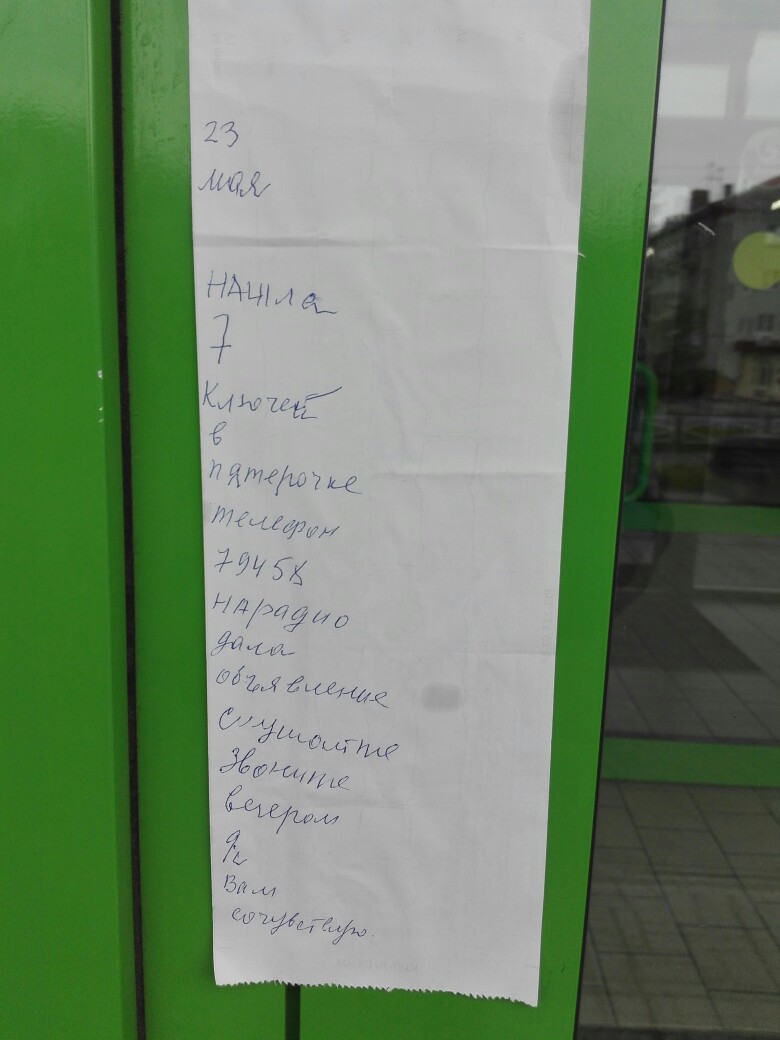 23
мая
НАШла
7
Ключей
в
пятерочке
телефон
79458
НАрадио
дала
объявление
Слушайте
Звоните
вечером
я
Вам
сочувствую.